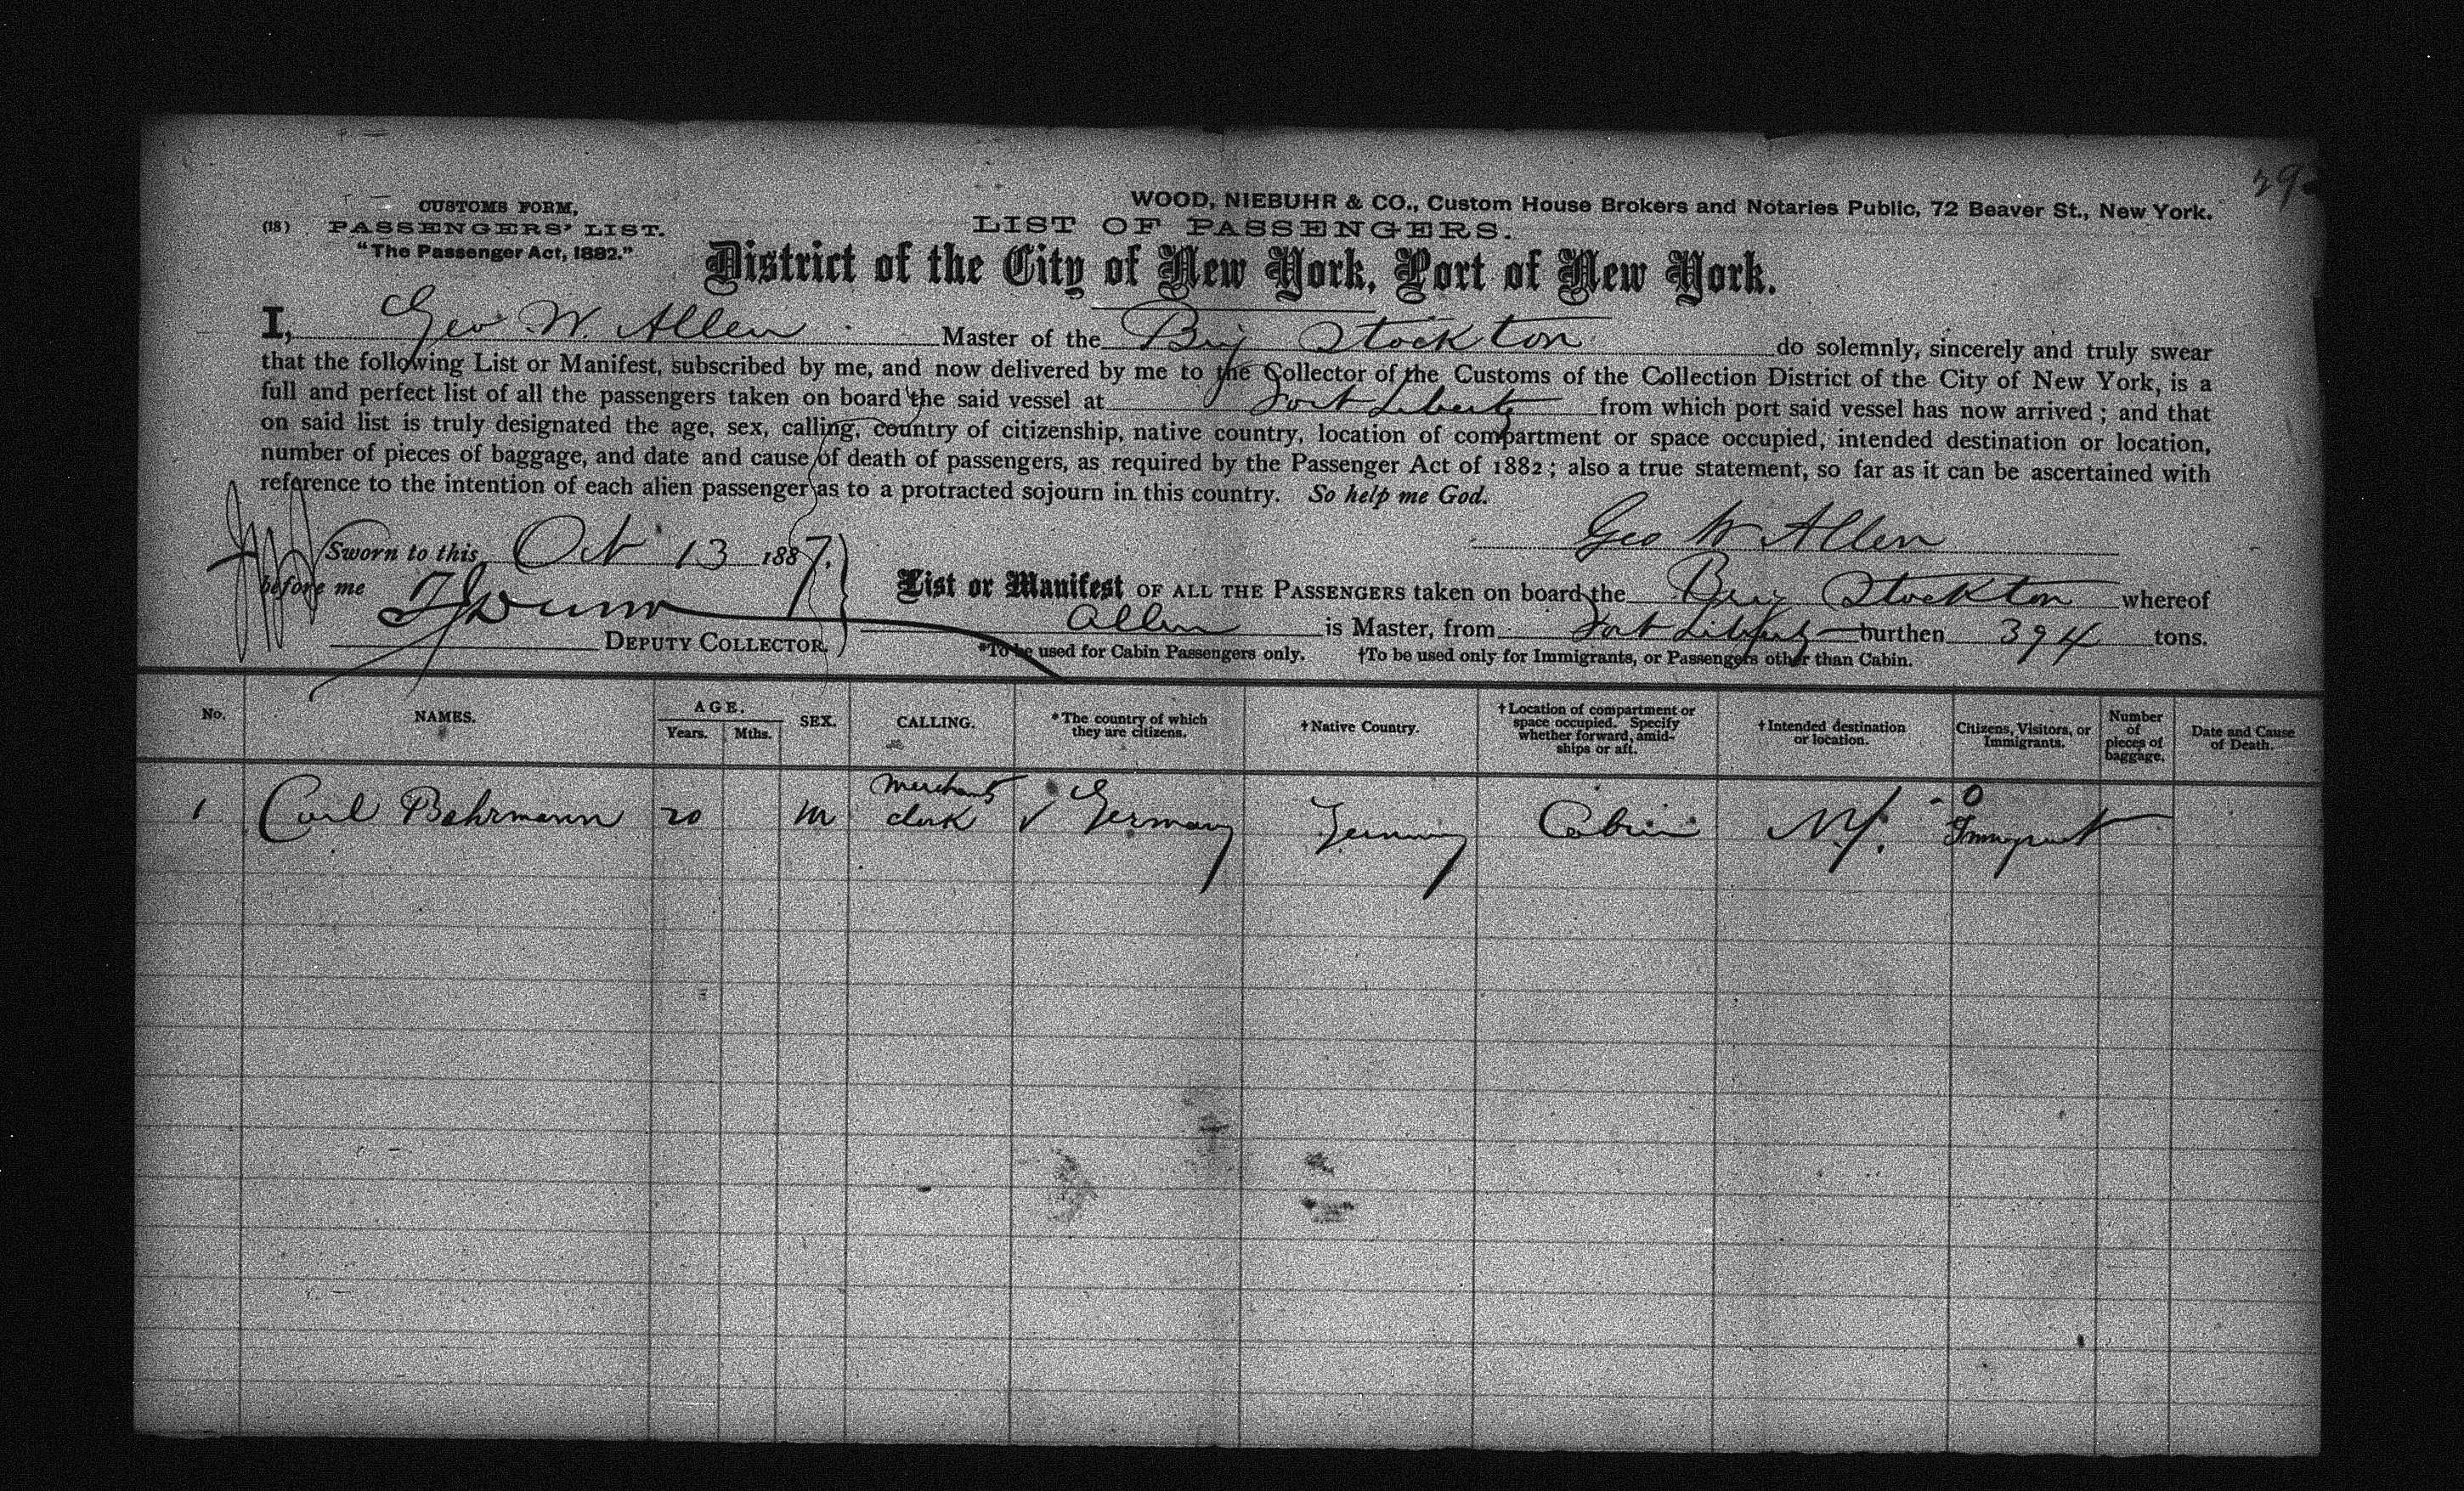 WOOD, NIEBUHR & CO., Custom House Brokers and Notaries Public, 72 Beaver St., New York.
CUSTOMS FORM,
(18) PASSENGERS' LIST.
"The Passenger Act, 1882."
LIST OF PASSENGERS.
District of the City of New York, Port of New York.
I, Geo W. Allen Master of the Brig Stockton do solemnly, sincerely and truly swear
that the following List or Manifest, subscribed by me, and now delivered by me to the Collector of the Customs of the Collection District of the City of New York, is a
full and perfect list of all the passengers taken on board the said vessel at Fort Liberty from which port said vessel has now arrived; and that
on said list is truly designated the age, sex, calling, country of citizenship, native country, location of compartment or space occupied, intended destination or location,
number of pieces of baggage, and date and cause of death of passengers, as required by the Passenger Act of 1882; also a true statement, so far as it can be ascertained with
reference to the intention of each alien passenger as to a protracted sojourn in this country. So help me God.
Geo W Allen
Sworn to this Oct 13 1887.
before me
DEPUTY COLLECTOR.
List or Manifest OF ALL THE PASSENGERS taken on board the Brig Stockton whereof
Allen is Master, from Fort Liberty burthen 394 tons.
*To be used for Cabin Passengers only. †To be used only for Immigrants, or Passengers other than Cabin.
No. NAMES. AGE. Years. Mths. SEX. CALLING. *The country of which they are citizens. †Native Country. †Location of compartment or space occupied. Specify whether forward, amidships or aft. †Intended destination or location. Citizens, Visitors, or Immigrants. Number of pieces of baggage. Date and Cause of Death.
1 Carl Bahrmann 20 M merchants clerk Germany Germany Cabin N.Y. Immigrant